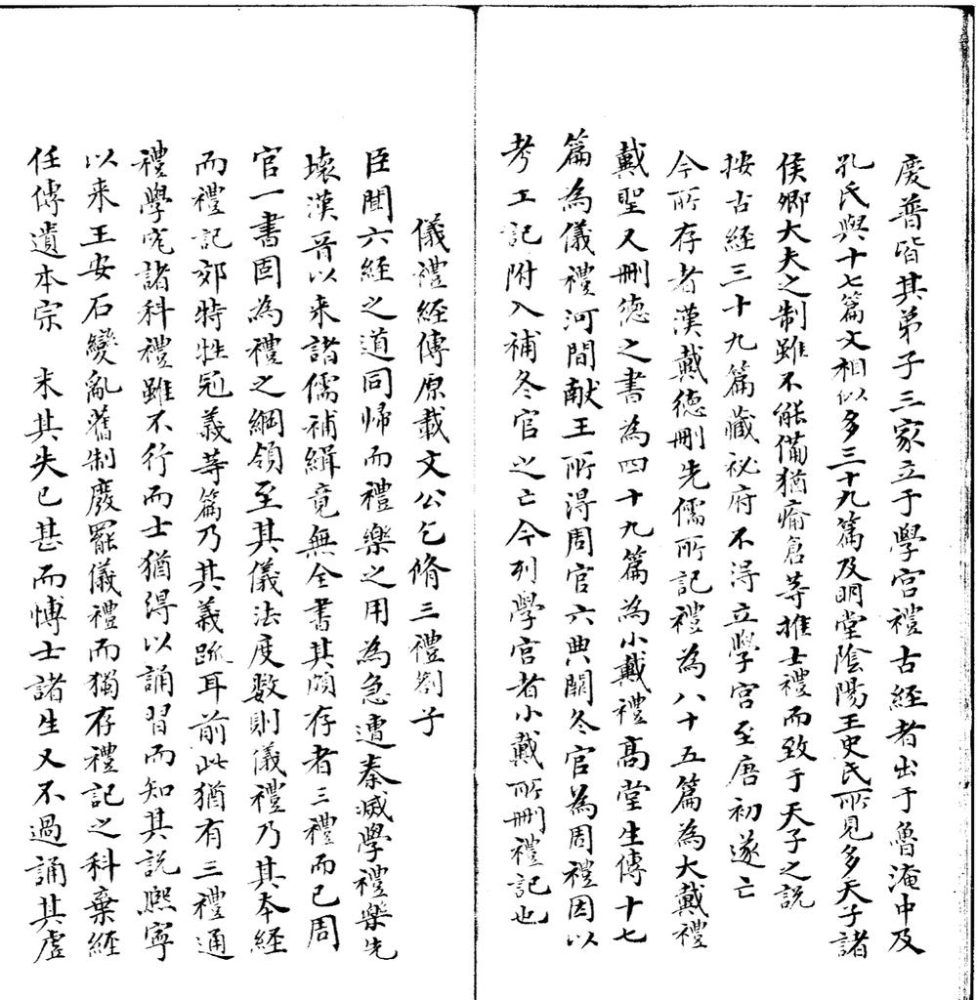 慶普皆其弟子三家立于學宫禮古経者出于魯淹中及
孔氏與十七篇文相似多三十九篇及明堂陰陽王史氏所見多天子諸
侯卿大夫之制雖不能備猶瘉倉等推士禮而致于天子之説
按古経三十九篇藏祕府不得立學宫至唐初遂亡
今所存者漢戴徳刪先儒所記禮為八十五篇為大戴禮
戴聖又刪徳之書為四十九篇為小戴禮髙堂生傳十七
篇為儀禮河間献王所得周官六典闕冬官為周禮因以
考工記附入補冬官之亡今列學宫者小戴所刪禮記也
儀禮経傳原載文公乞脩三禮劄子
臣聞六経之道同帰而禮樂之用為急遭秦滅學禮樂先
壊漢晋以来諸儒補緝竟無全書其頗存者三禮而已周
官一書固為禮之綱領至其儀法度数則儀禮乃其本経
而禮記郊特牲冠義等篇乃其義疏耳前此猶有三禮通
禮學究諸科禮雖不行而士猶得以誦習而知其説熈寧
以来王安石變亂舊制廢罷儀禮而獨存禮記之科棄経
任傳遺本宗末其失已甚而愽士諸生又不過誦其虚